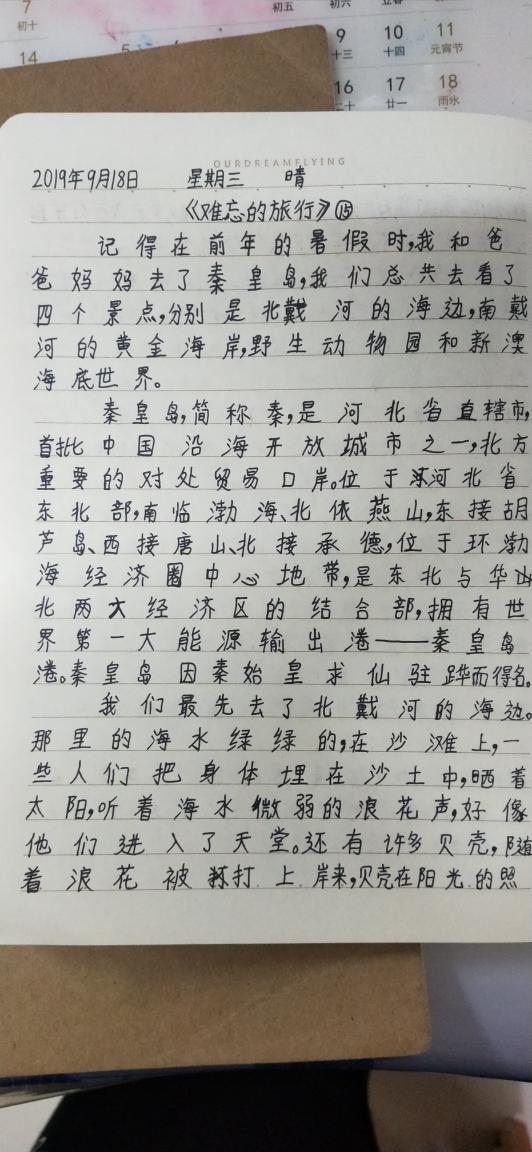 7
初十
14
5
6
初五
初六
立春
9
10
11
十三
十四
元宵节
16
17
18
二十
廿一
雨水
OURDREAMFLYING
2019年9月18日 星期三 晴
《难忘的旅行》⑮
记得在前年的暑假时,我和爸
爸妈妈去了秦皇岛,我们总共去看了
四个景点,分别是北戴河的海边,南戴
河的黄金海岸,野生动物园和新澳
海底世界。
秦皇岛,简称秦,是河北省直辖市,
首批中国沿海开放城市之一,北方
重要的对处贸易口岸。位于河北省
东北部,南临渤海、北依燕山,东接胡
芦岛、西接唐山、北接承德,位于环渤
海经济圈中心地带,是东北与华
北两大经济区的结合部,拥有世
界第一大能源输出港——秦皇岛
港。秦皇岛因秦始皇求仙驻跸而得名。
我们最先去了北戴河的海边。
那里的海水绿绿的,在沙滩上,一
些人们把身体埋在沙土中,晒着
太阳,听着海水微弱的浪花声,好像
他们进入了天堂。还有许多贝壳,随
着浪花被打上岸来,贝壳在阳光的照